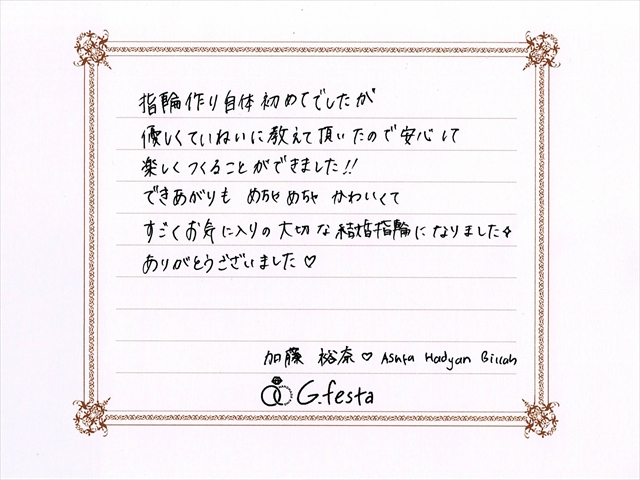 指輪作り自体初めてでしたが
優しくていねいに教えて頂いたので安心して
楽しくつくることができました!!
できあがりも めちゃめちゃ かわいくて
すごくお気に入りの大切な結婚指輪になりました☆
ありがとうございました♡
加藤 裕奈♡ Hadyan
G.festa